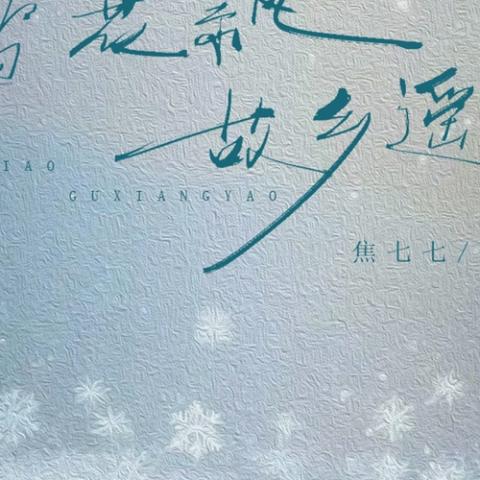 雪花飘
故乡遥
IAO
GUXIANGYAO
焦七七/